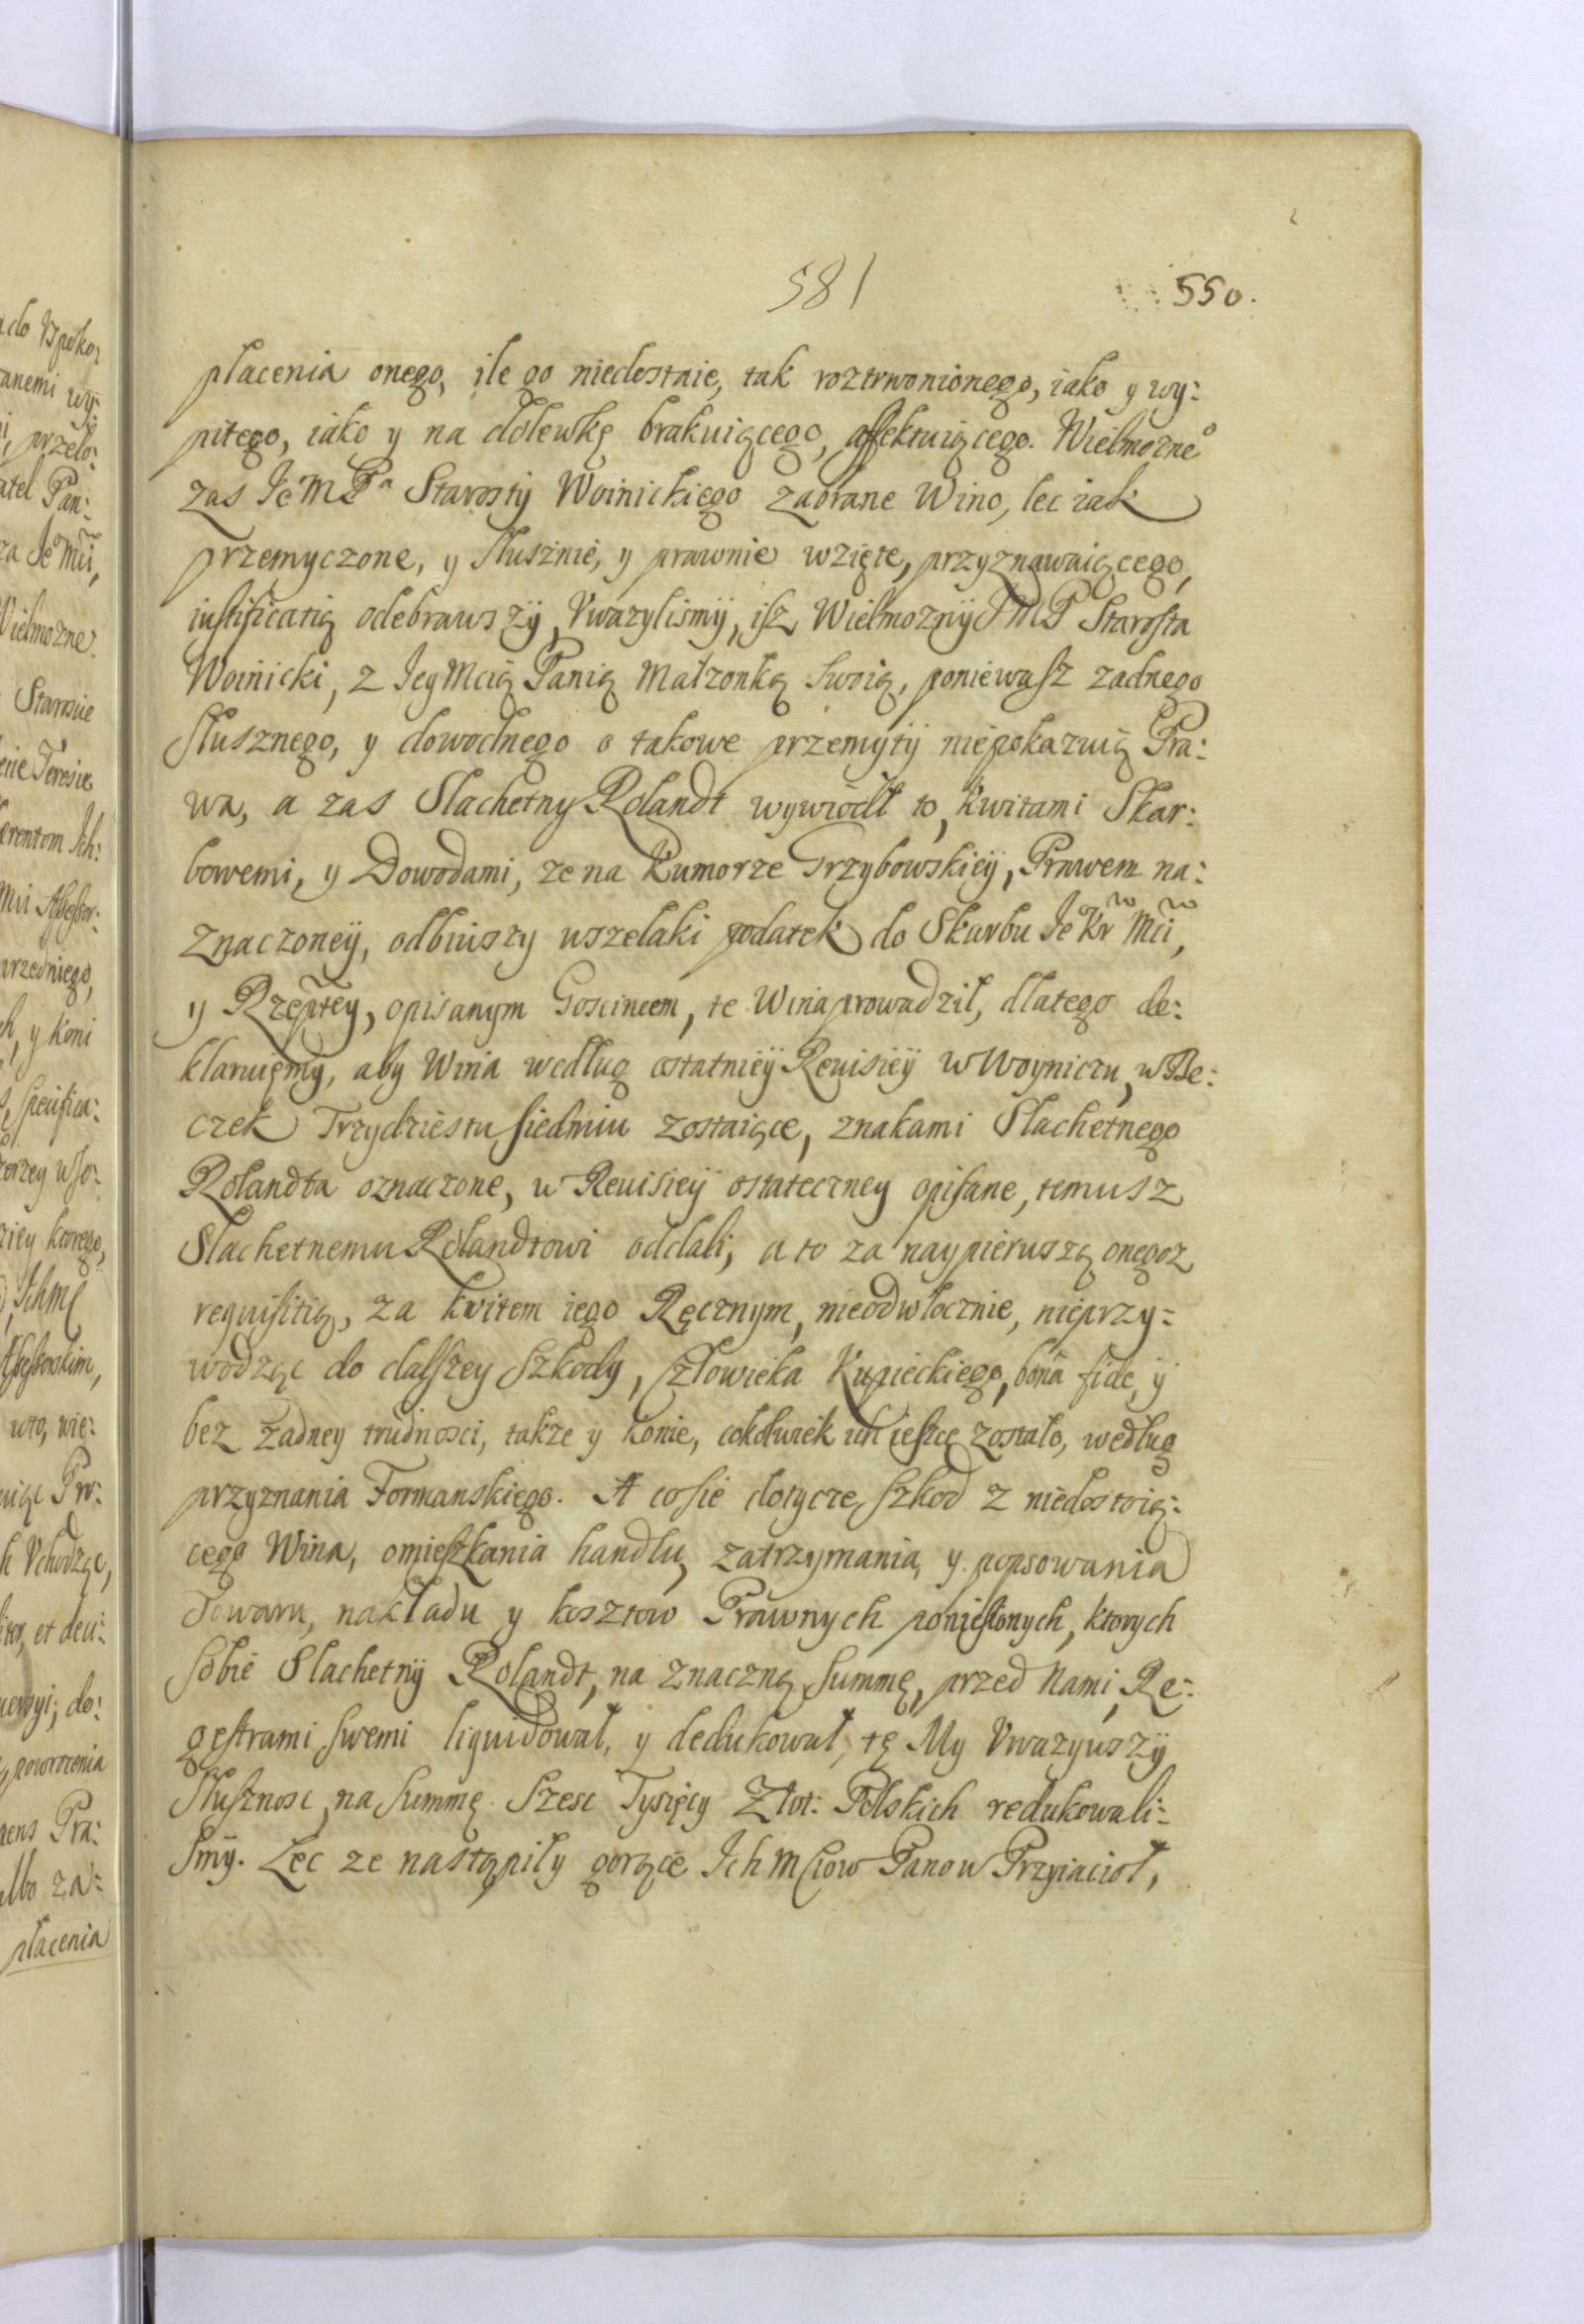 581
550.
płacenia onego, ile go niedostaie, tak roztrwonionego, iako y wy:
pitego, iako y na dolewkę brakuiącego, affektuiącego. Wielmozneº
zas Je M Pª Starosty Woinickiego zabrane Wino, lec iak
przemyczone, y słusznie, y prawnie wzięte, przyznawaiącego,
iustificatią odebrawszÿ, Vwazylismÿ, isz WielmoznÿJMP Starosta
Woinicki, z JegMcią Panią Małzonką swoią, poniewasz zadnego
słusznego, y dowodnego o takowe przemytÿ niepokazuią Pra:
wa, a zas Slachetny Rolandt wywiodł to, kwitami Skar:
bowemi, y Dowodami, ze na Kumorze Grzybowskiÿ, Prawem na:
znaczoneÿ, odbiuszy uszelaki podatek do Skarbu Je Kr Mci,
y Rzeptey, opisanym Goscincem, te Wina prowadził, dlatego de:
klaruięmy, aby Wina według ostatniëÿ Reuisiëÿ w Woyniczu, w Be:
czek Trzydziestu siedmiu zostaiące, znakami Slachetnego
Rolandta oznaczone, w Reuisieÿ ostateczney opisane, temusz
Slachetnemu Rolandtowi oddali, a to za naypieruszą onegoz
requisitią, za kwitem iego Ręcznym, nieodwłocznie, nieprzy:
wodząc do dalszey szkody, człowieka Kupieckiego, bona fide, ÿ
bez zadney trudnosci, takze y konie, cokolwiek ich ieszcze zostało, według
przyznania Formanskiego. A co sie dotycze szkod z niedostoią:
cego Wina, omieszkania handlu, zatrzymania, y popsowania
Towaru, nakładu y kosztow Prawnych poniesionych, ktorych
sobie Slachetnÿ Rolandt, na znaczną summę, przed Nami, Re:
gestrami swemi liquidował, y dedukował, tę My Vwazyuszÿ
słusznosc, na summę szesc Tysięcy Złot: Polskich redukowali:
smÿ. Lec ze nastąpiły gorące Ich Mciow Panow Przyiacioł,